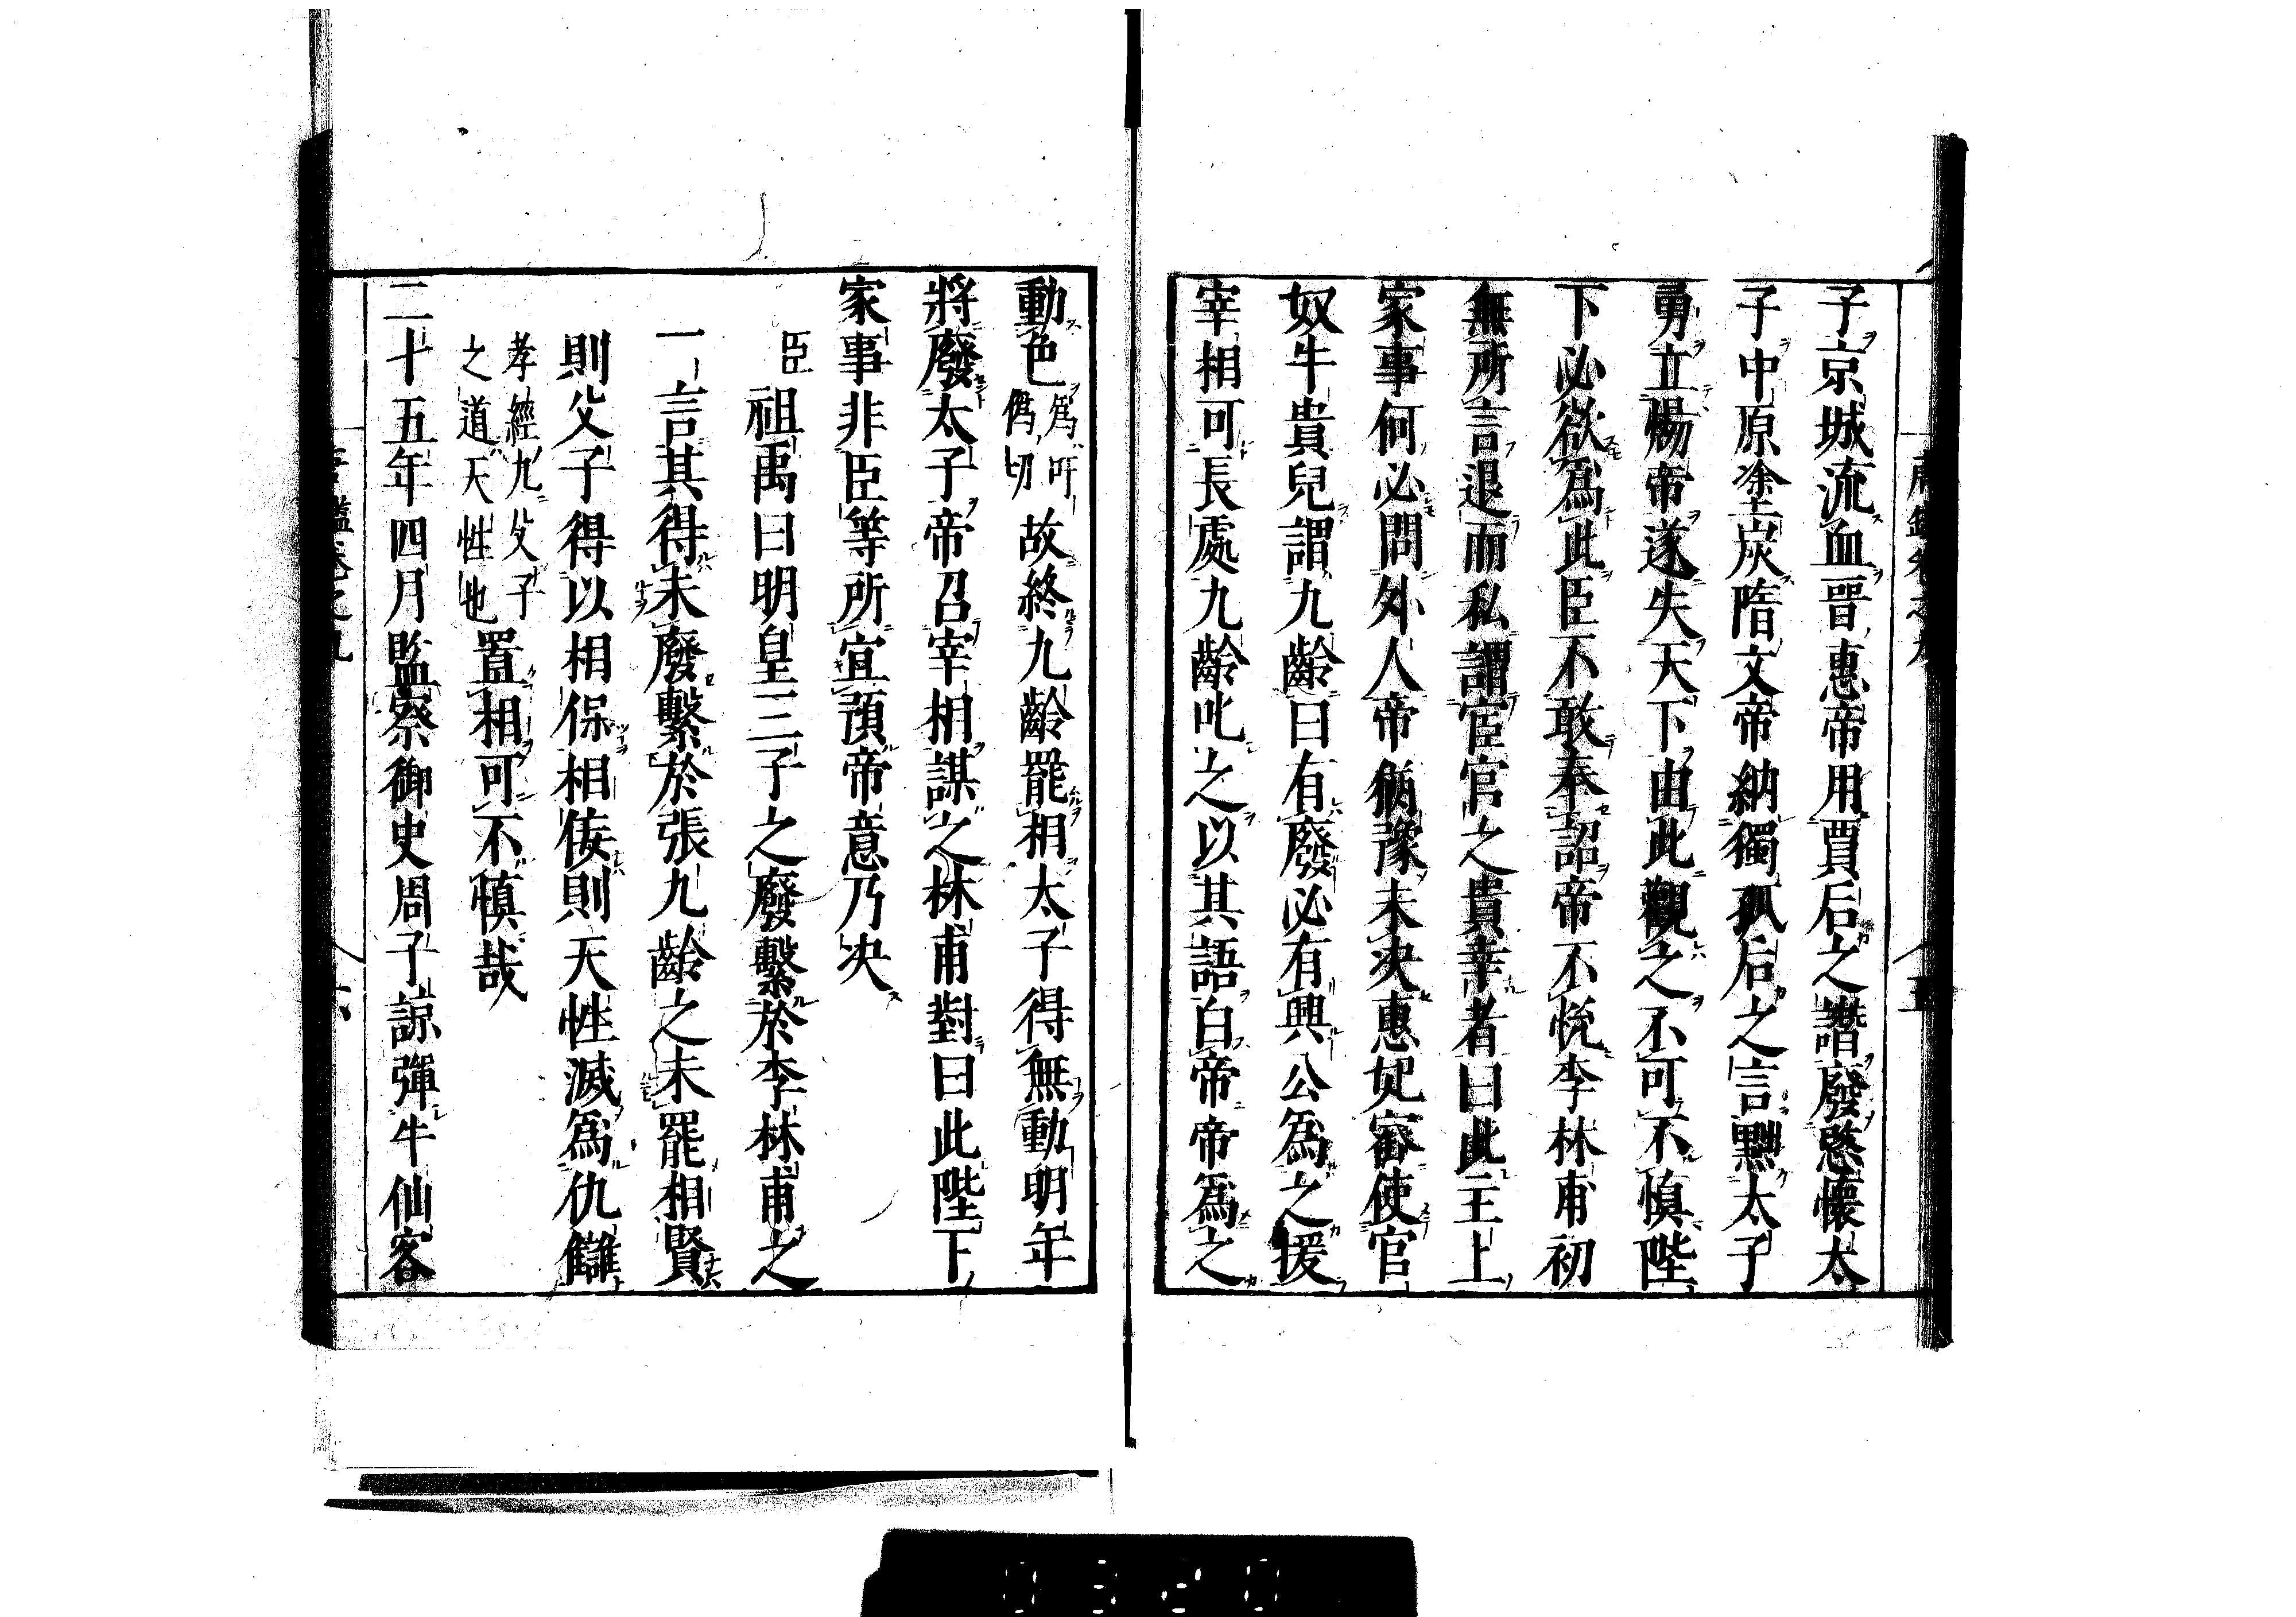 子京城流血晉惠帝用賈后之譖廢愍懷太
子中原塗炭隋文帝納獨孤后之言黜太子
勇立煬帝遂失天下由此觀之不可不慎陛
下必欲爲此臣不敢奉詔帝不悅李林甫初
無所言退而私謂宦官之貴幸者曰此主上
家事何必問外人帝猶豫未決惠妃密使官
奴牛貴兒謂九齡曰有廢必有興公爲之援
宰相可長處九齡叱之以其語白帝帝爲之
動色爲吁
僞切故終九齡罷相太子得無動明年
將廢太子帝召宰相謀之林甫對曰此陛下
家事非臣等所宜預帝意乃决
臣祖禹曰明皇三子之廢繫於李林甫之
一言其得未廢繫於張九齡之未罷相賢
則父子得以相保相佞則天性滅爲仇讎
孝經九父子
之道天性也置相可不慎哉
二十五年四月監察御史周子諒彈牛仙客
唐鑑卷之九